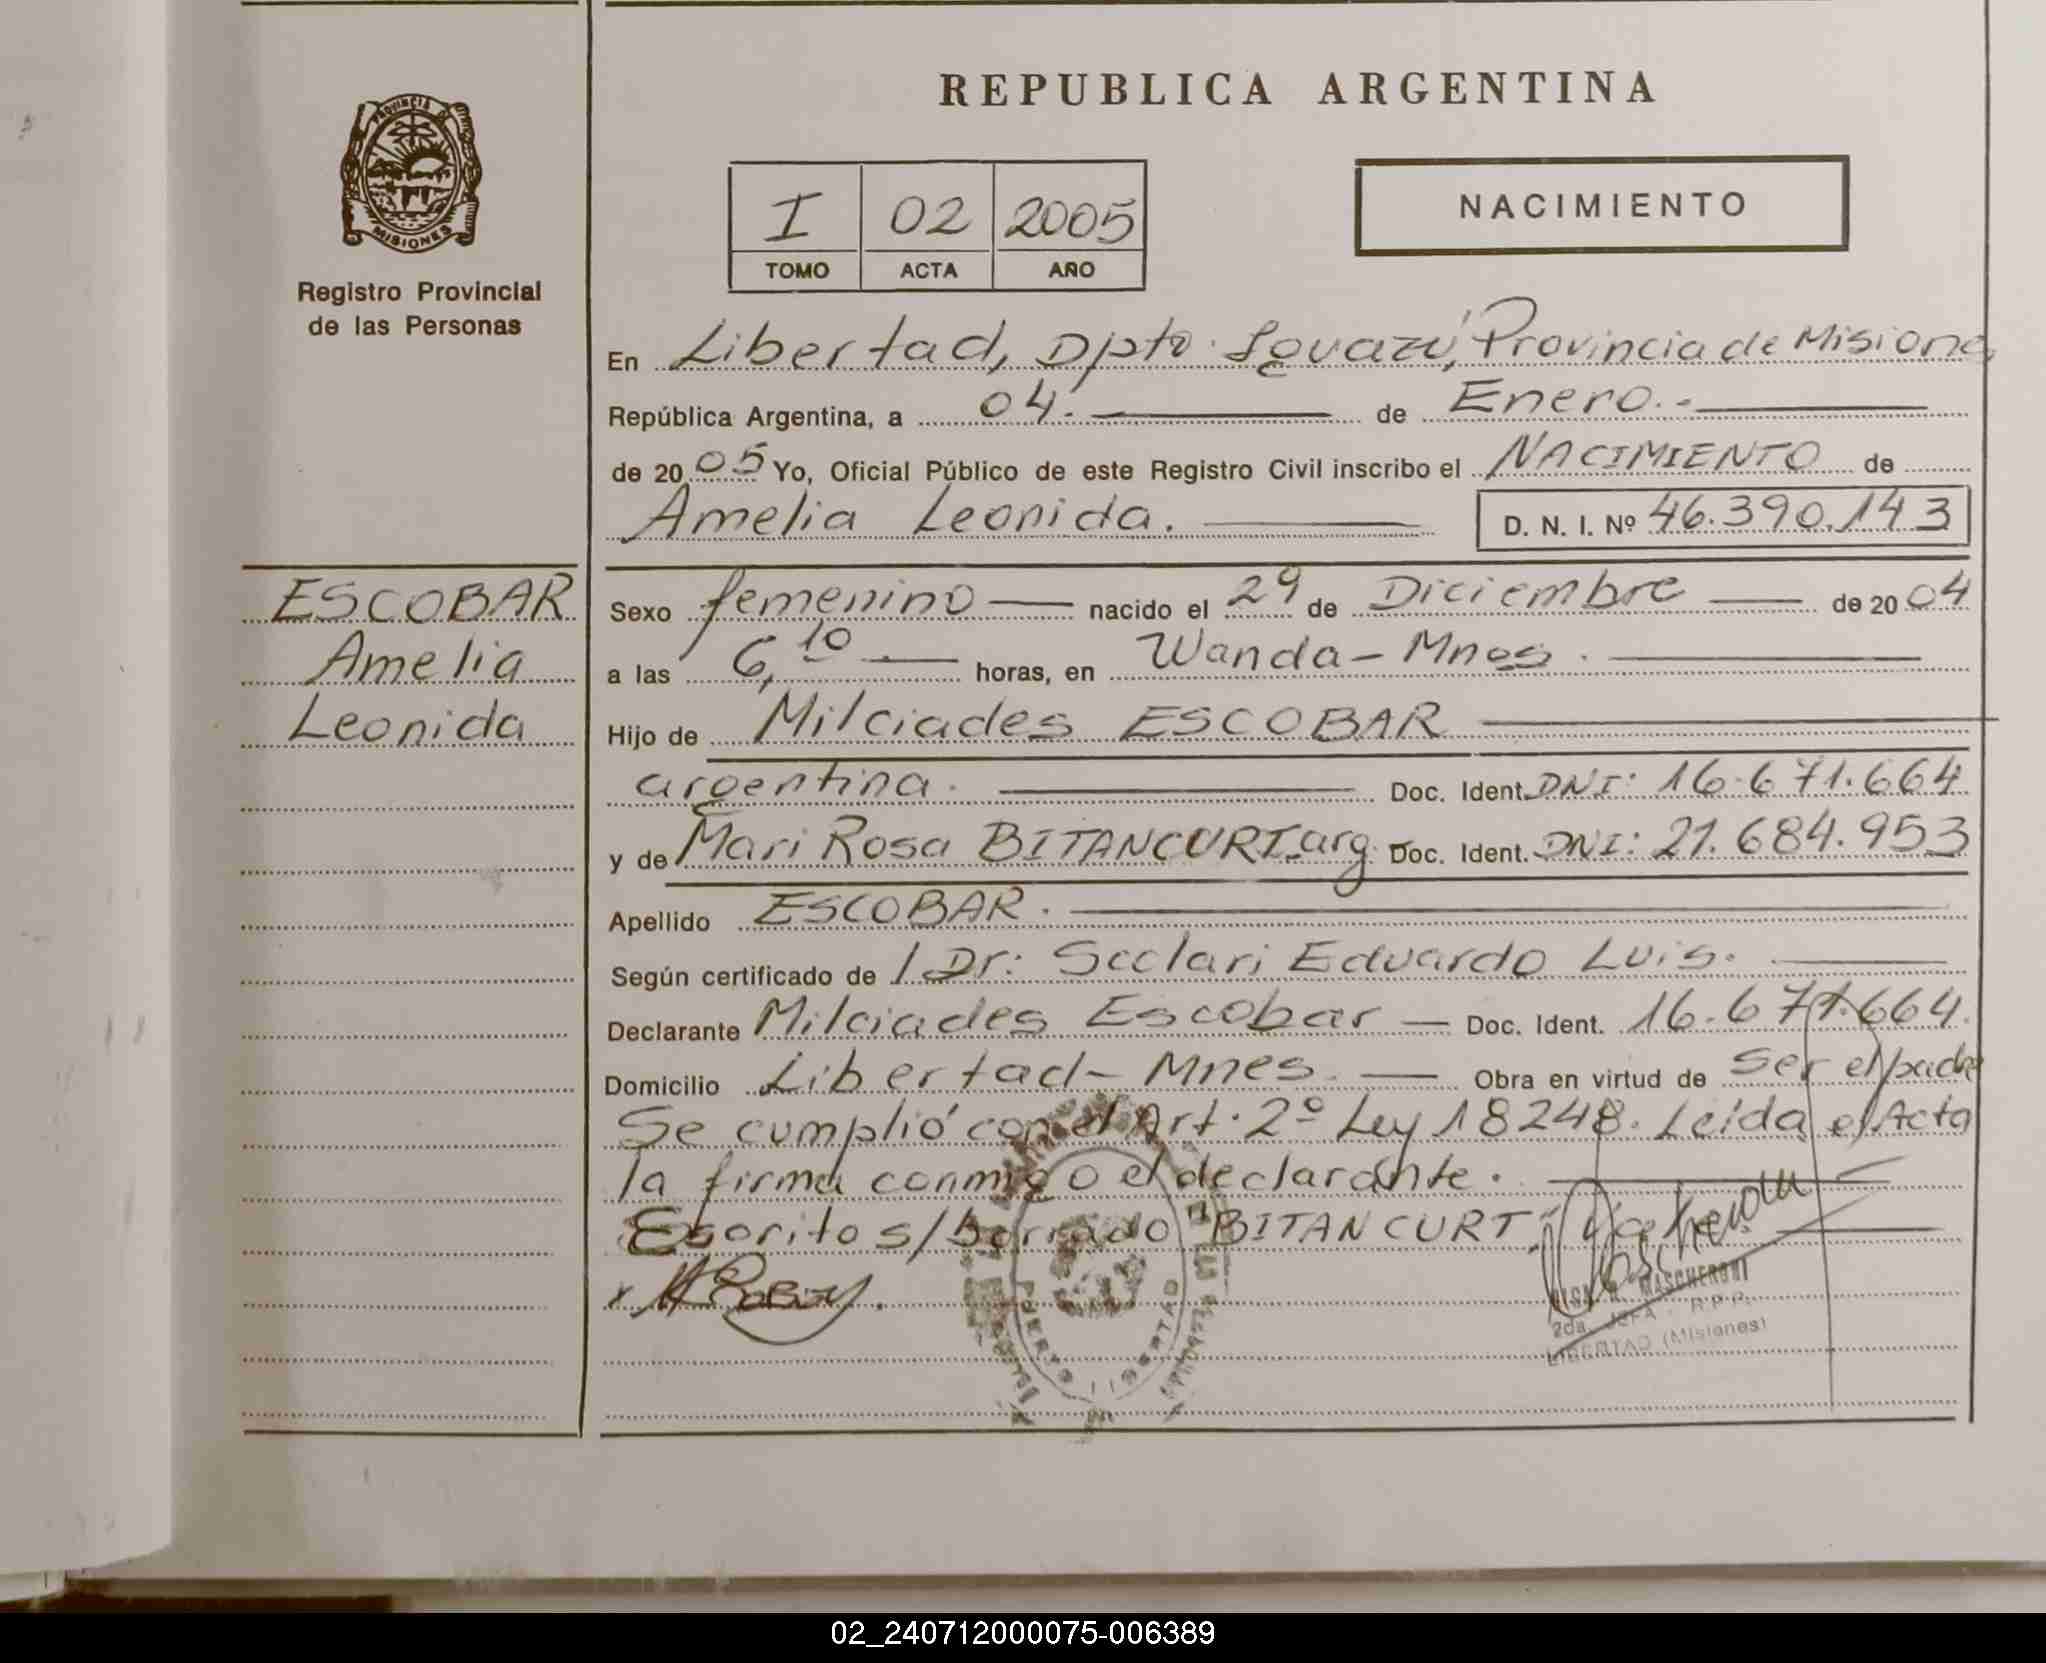 REPUBLICA ARGENTINA
PROVINCIA DE
MISIONES
Registro Provincial
de las Personas
I 02 2005
TOMO ACTA AÑO
NACIMIENTO
En Libertad, Dpto. Iguazú, Provincia de Misiones
República Argentina, a 04. de Enero.
de 2005 Yo, Oficial Público de este Registro Civil inscribo el NACIMIENTO de
Amelia Leonida. D. N. I. Nº 46.390.143
ESCOBAR
Amelia
Leonida
Sexo femenino nacido el 29 de Diciembre de 2004
a las 6,10 horas, en Wanda - Mnes.
Hijo de Milciades ESCOBAR
argentina. Doc. Ident. DNI: 16.671.664
y de Mari Rosa BITANCURT. arg. Doc. Ident. DNI: 21.684.953
Apellido ESCOBAR.
Según certificado de Dr: Scclari Eduardo Luis.
Declarante Milciades Escobar - Doc. Ident. 16.671.664.
Domicilio Libertad - Mnes. Obra en virtud de ser el padre
Se cumplió con el Art. 2º Ley 18248. Leída el Acta
la firma conmigo el declarante.
Escrito s/borrado "BITANCURT". Vale
MASCHERONI
2da. JEFA R.P.P.
LIBERTAD (Misiones)
PUERTO LIBERTAD
02_240712000075-006389